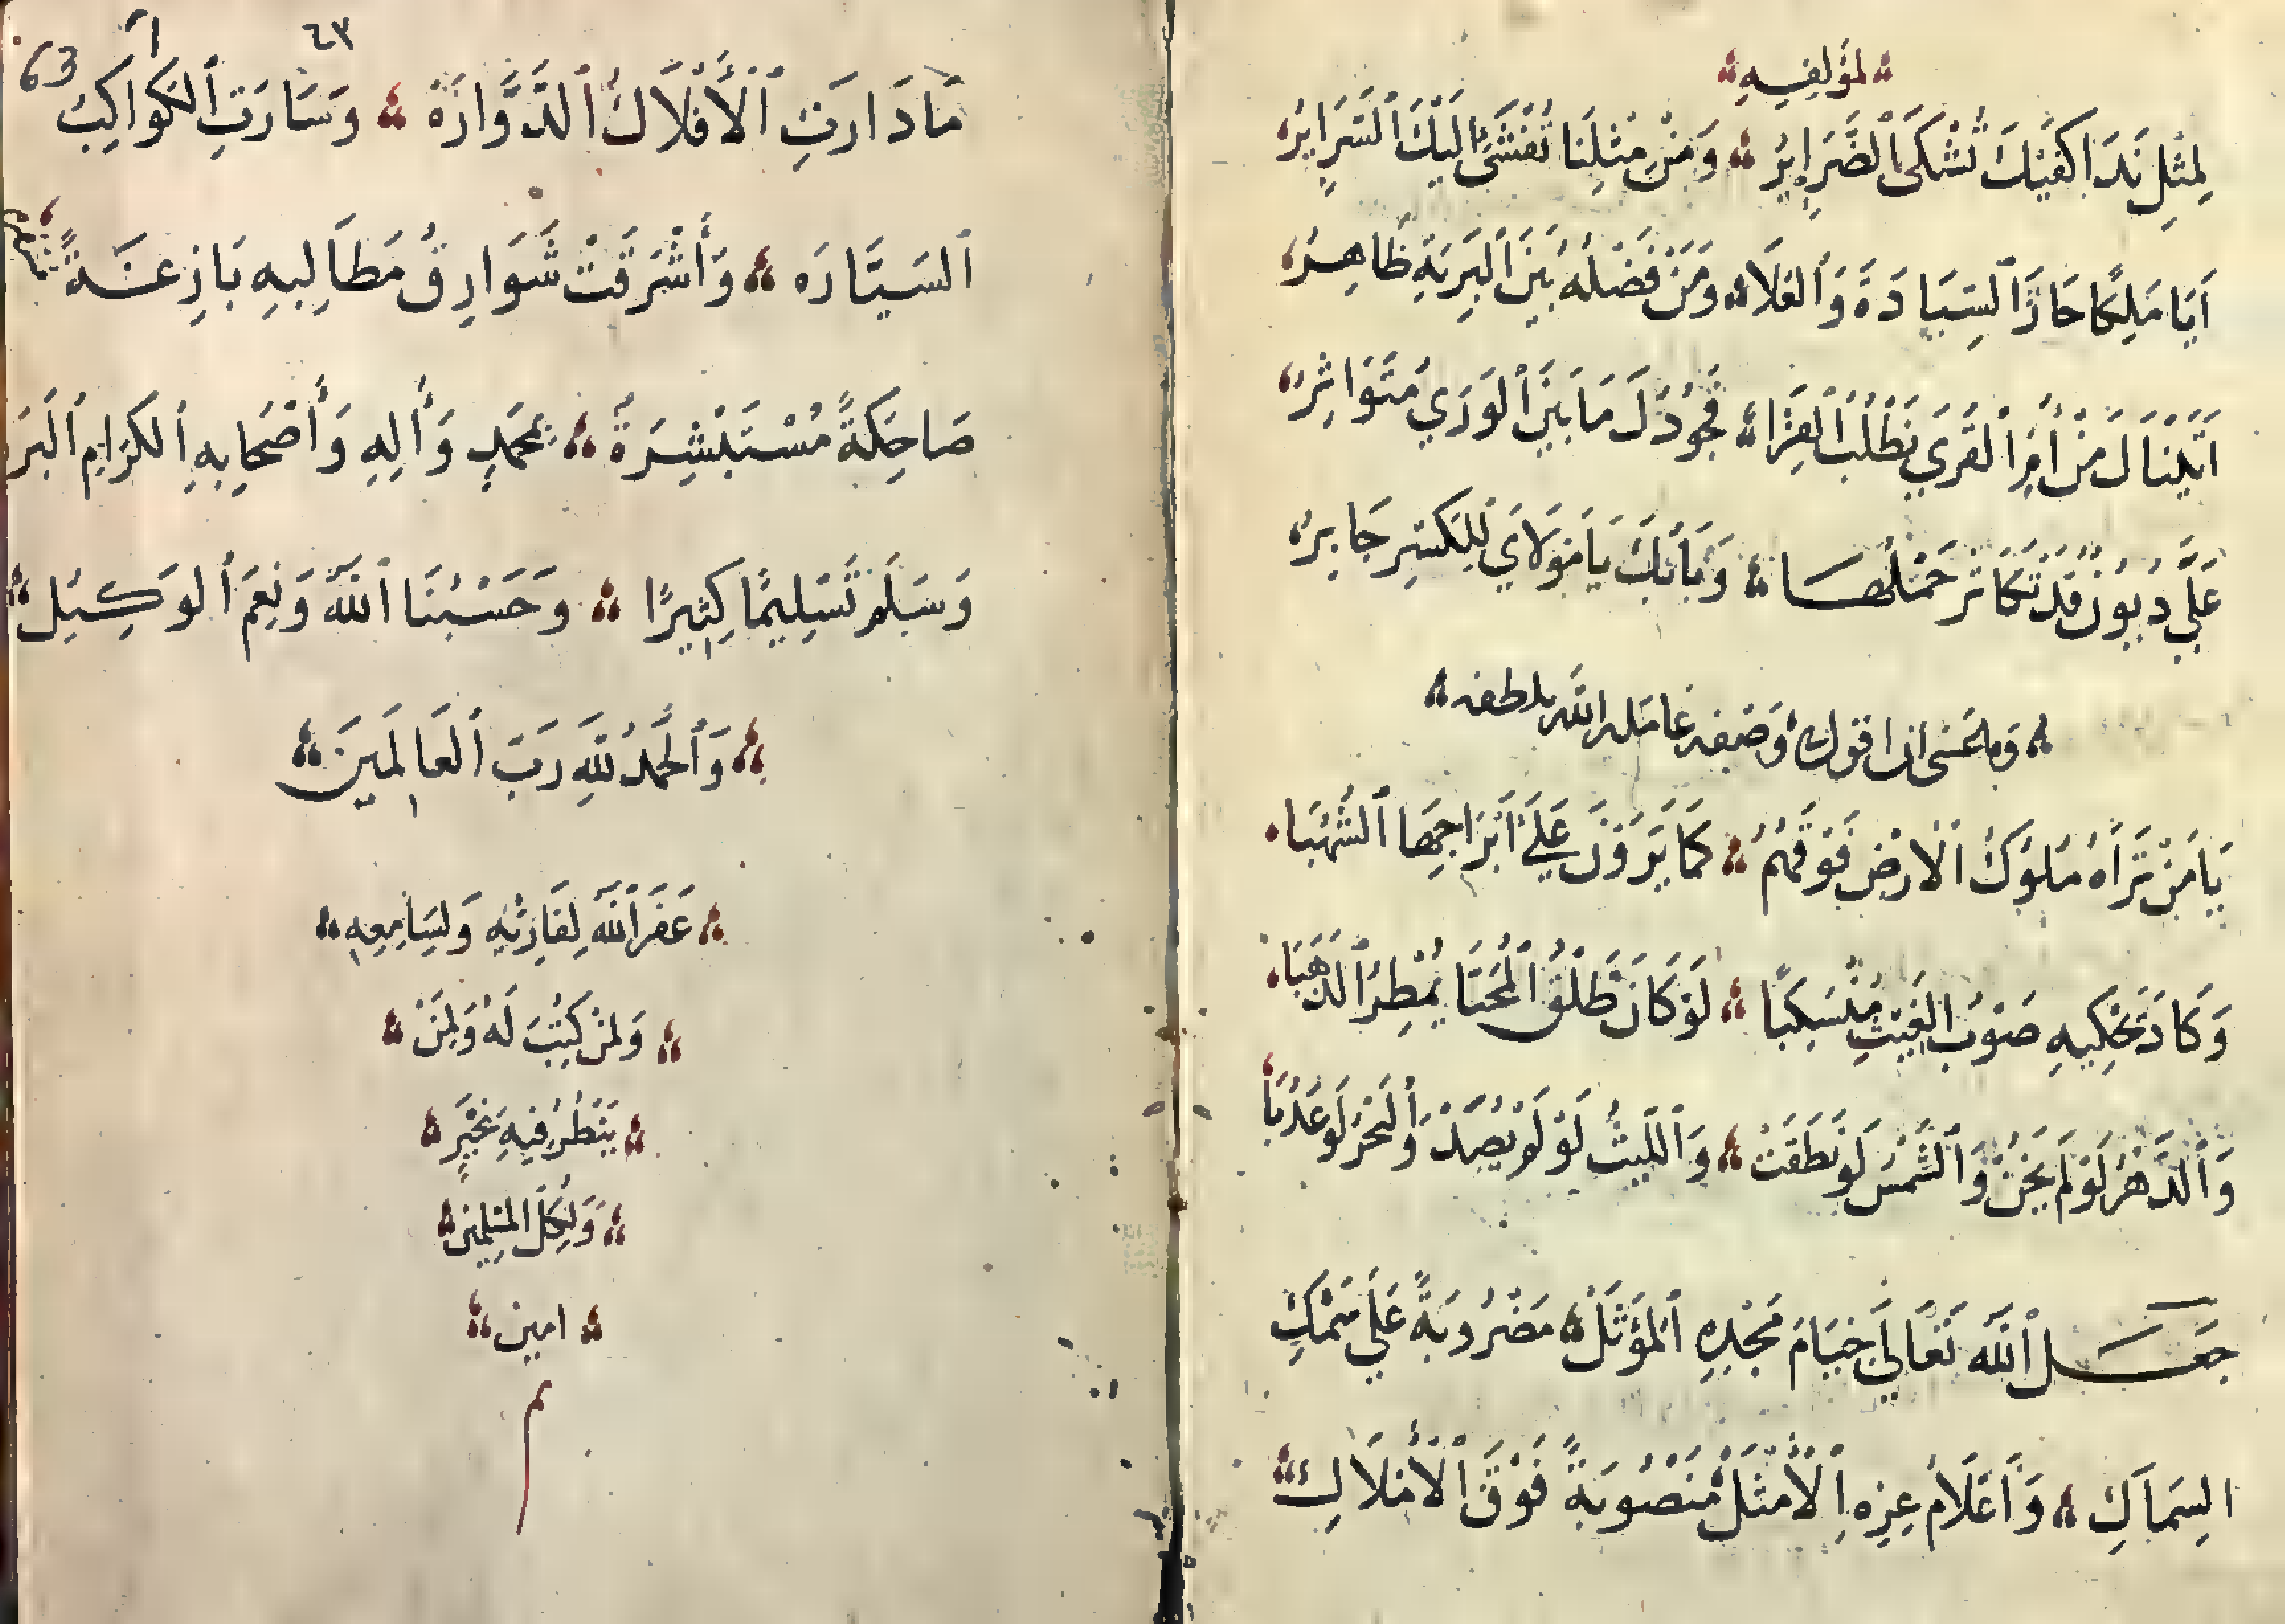 لمؤلفه
لِمِثْلِ نَدَا كَفَّيْكَ تُشْكَى الضَّرَايِرُ وَمَنْ مِثْلِنَا تُفْشَى إِلَيْكَ السَّرَايِرُ
أَيَا مَلِكًا حَازَ السِّيَادَةَ وَالعُلَا وَمَنْ فَضْلُهُ بَيْنَ البَرِيَّةِ ظَاهِرُ
أَتَيْنَاكَ مِنْ أُمِّ القُرَى نَطْلُبُ القِرَا فَجُودُكَ مَا بَيْنَ الوَرَي مُتَوَاتِرُ
عَلَيَّ دُيُونٌ قَدْ تَكَاثَرَ حَمْلُهَا وَبَابُكَ يَا مَوْلَايَ لِلكَسْرِ جَابِرُ
ان اقول وصفه عامله الله بلطفه
يَا مَنْ تَرَاهُ مُلُوكُ الْأَرْضِ فَوْقَهُمُ كَمَا يَرَوْنَ عَلَى أَبْرَاجِهَا الشُّهُبَا
وَكَادَ يَحْكِيهِ صَوْبُ الغَيْثِ مُنْسَكِبًا لَوْ كَانَ طَلْقَ المُحَيَّا يُمْطِرُ الذَّهَبَا
وَالدَّهْرُ لَوْ لَمْ يَخُنْ وَالشَّمْسُ لَوْ نَطَقَتْ وَاللَّيْثُ لَوْ لَمْ يُصَدْ وَالبَحْرُ لَوْ عَذُبَا
جَعَلَ اللهُ تَعَالَى خِيَامَ مَجْدِهِ المُؤَثَّلِ مَضْرُوبَةً عَلَى سَمْكِ
السِّمَاكِ وَأَعْلَامَ عِزِّهِ الْأَمْثَلِ مَنْصُوبَةً فَوْقَ الْأَفْلَاكِ
٦٣
63
مَا دَارَتِ الْأَفْلَاكُ الدَّوَّارَةُ وَسَارَتِ الكَوَاكِبُ
السَّيَّارَه وَأَشْرَقَتْ شَوَارِقُ مَطَالِبِهِ بَازِغَةً
ضَاحِكَةً مُسْتَبْشِرَةً بِمُحَمَّدٍ وَآلِهِ وَأَصْحَابِهِ الكِرَامِ
وَسَلَّمَ تَسْلِيمًا كَثِيرًا وَحَسْبُنَا اللهُ وَنِعْمَ الوَكِيل
وَالحَمْدُ للهِ رَبِّ العَالَمِينَ
غَفَرَ اللهُ لِقَارِئِهِ وَلِسَامِعِهِ
وَلِمَنْ كُتِبَ لَهُ وَلِمَنْ
يَنْظُرُ فِيهِ بِخَيْرٍ
وَلِكُلِّ المُسْلِمِينَ
امين
م